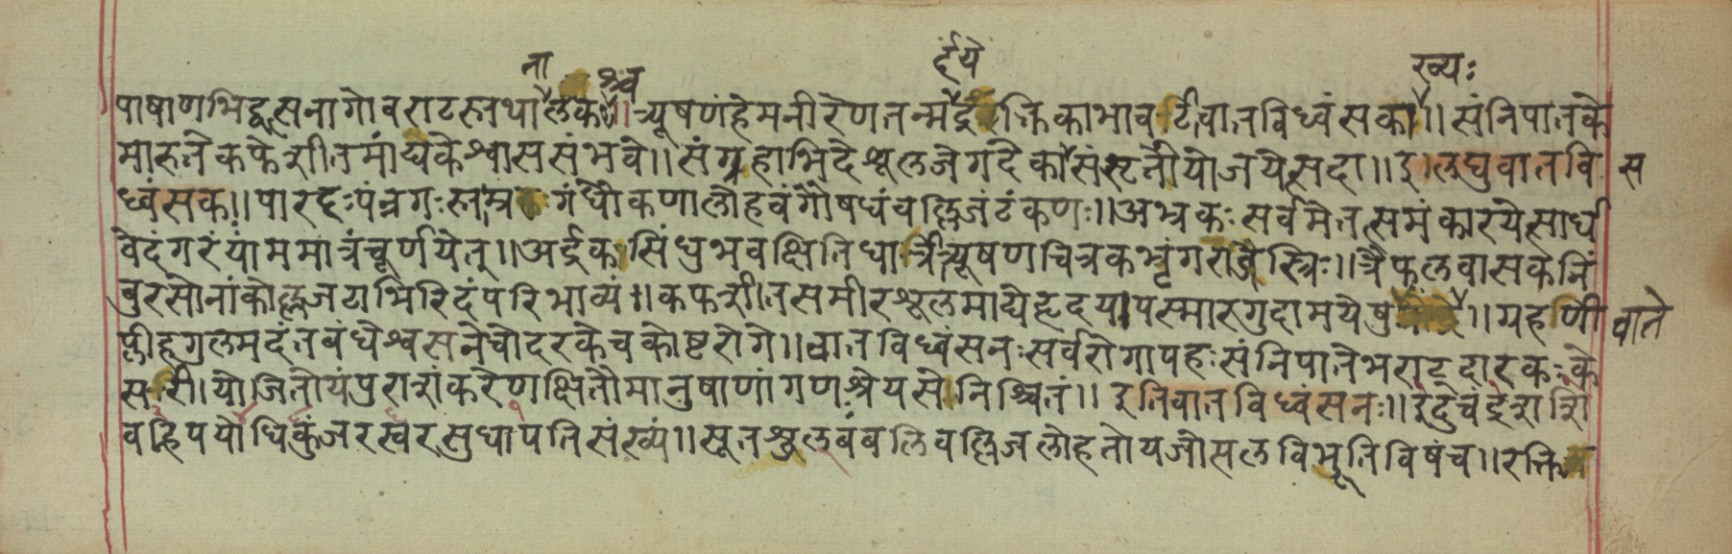 ना श्च र्द्दये ख्यः
पाषाणभिद्वत्सनागो वराटस्तथालक॥ त्र्यूषणं हेमनीरेण तन्मर्द्द रक्तिकाभा वटी वातविध्वंसका॥ संनिपातके
मारुते कफे शीतमांद्यके श्वाससंभवे॥ संग्रहाभिदे श्रूलजे गदे कासंस्टतौ योजयेत्सदा॥ इ। लघुवातवि स
ध्वंसक॥ पारदः पंन्नगः स्ताम्र गंधौ कणा लोहवंगौषधं वह्लिजं टंकणः॥ अभ्रकः सर्वमेतत्समं कारयेत्सार्ध
वेदं गरं यांममात्रं चूर्णयेत्॥ अर्द्रक सिंधुभवक्षितिधात्री त्र्यूषणचित्रकभृंगराजैस्त्रिः॥ त्रैफलवासकनिं
बुरसोनांकोल्लजटाभिरिदं परिभाव्यं॥ कफशीतसमीरश्रूलमाद्ये हृदयापस्मारगुदामयेषु ॥ ग्रहणी वाते
प्लीहगुलमदंतबंधे श्वसने चोदरके च कोष्टरोगे॥ वातविध्वंसनः सर्वरोगापहः संनिपातेभराट् दारकः के
सरी। योजितोयं पुरा शंकरेण क्षितौ मानुषाणां गण श्रेयसे निश्चितं॥ इति वातविध्वंसनः॥ इंदुचंद्रेशशि
वह्निपयोधिकुंजरस्वरसुधापतिसंख्यं॥ सूतश्रुल्बंबलिवह्लिजलोहतोयजोसलविभूतिविषं च॥ रक्ति